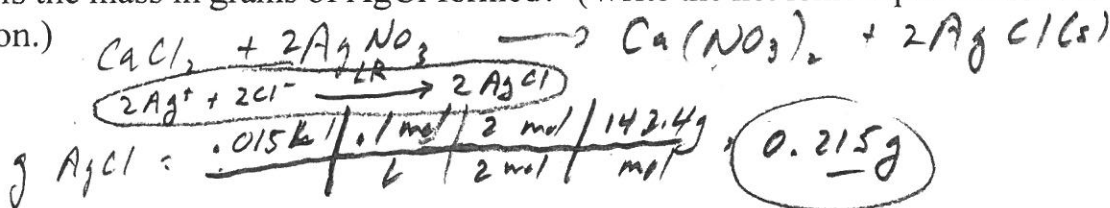 is the mass in grams of AgCl formed? (Write the net ionic
on.)
CaCl₂ + 2AgNO₃ → Ca(NO₃)₂ + 2AgCl(s)
LR
2Ag⁺ + 2Cl⁻ → 2AgCl
g AgCl = .015 L | .1 mol | 2 mol | 142.4g = 0.215g
L | 2 mol | mol